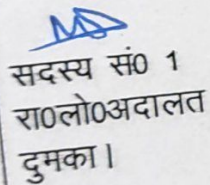 सदस्य सं0 1
रा0लो0अदालत
दुमका।